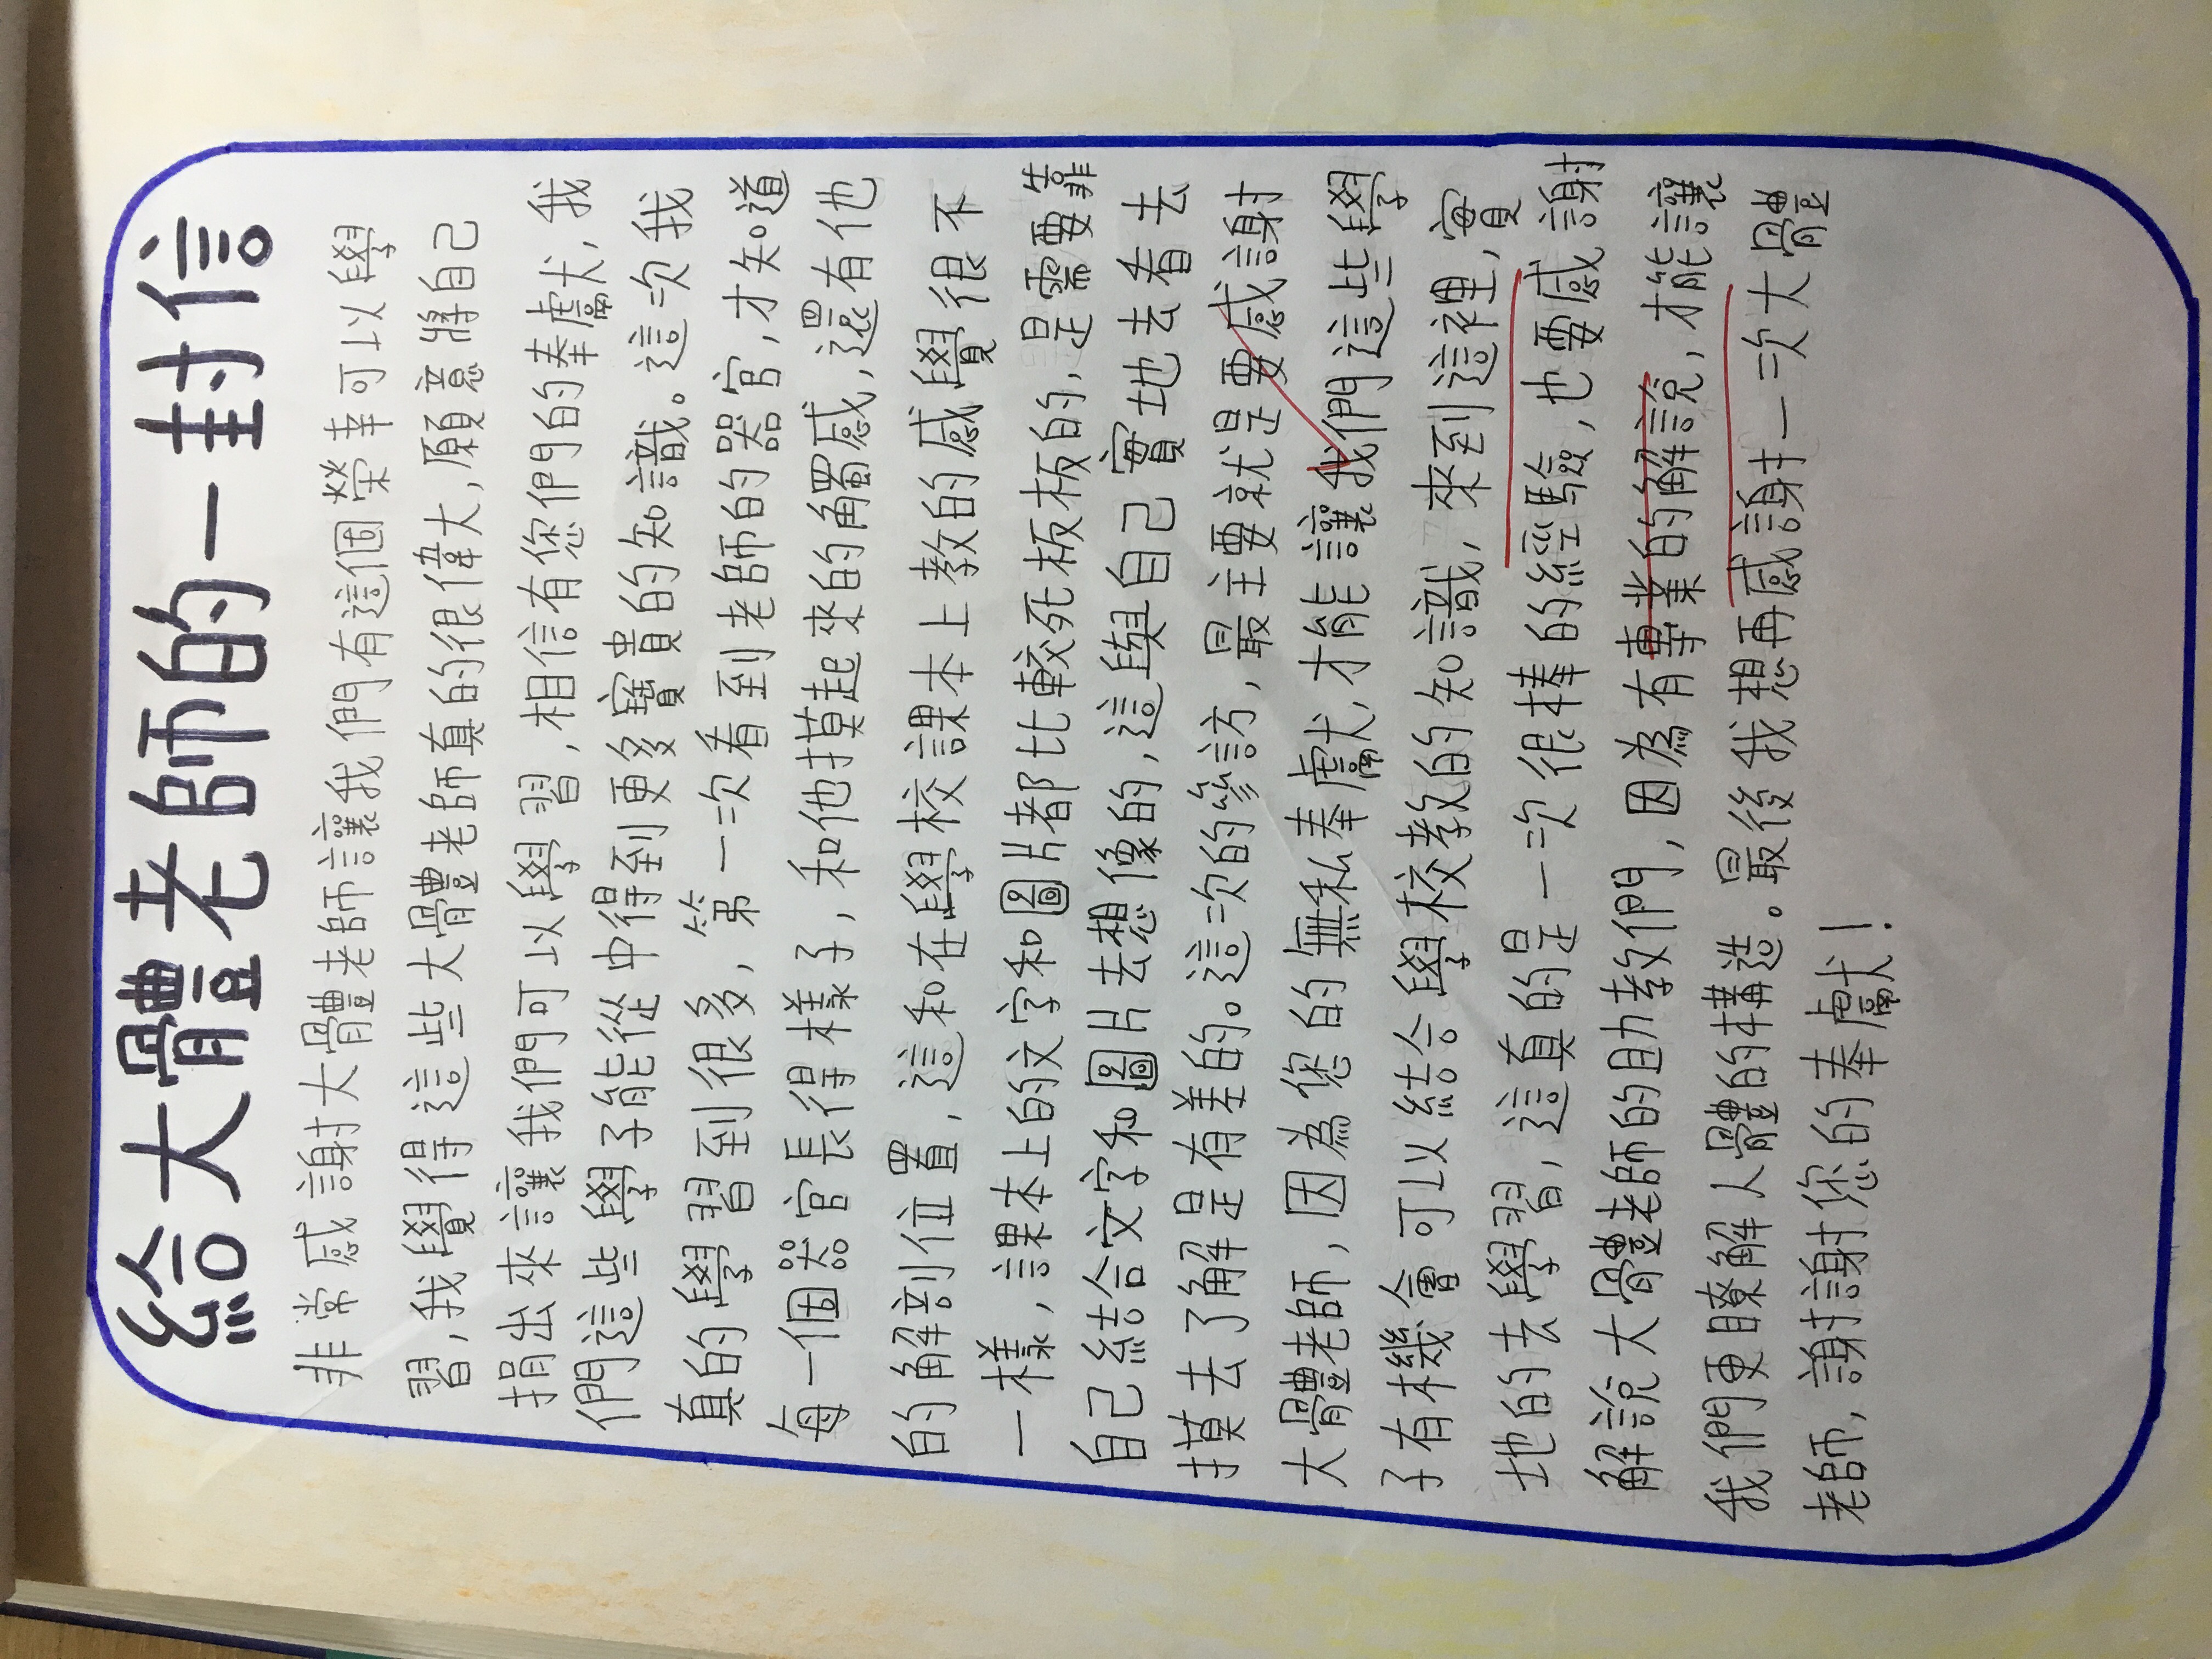 給大體老師的一封信
非常感謝大體老師讓我們有這個榮幸可以學
習,我覺得這些大體老師真的很偉大,願意將自己
捐出來讓我們可以學習,相信有您們的奉獻,我
們這些學子能從中得到更多寶貴的知識。這次我
真的學習到很多,第一次看到老師的器官,才知道
每一個器官長得樣子,和他摸起來的觸感,還有他
的解剖位置,這和在學校課本上教的感覺很不
一樣,課本上的文字和圖片都比較死板板的,是需要靠
自己結合文字和圖片去想像的,這與自己實地去看去
摸去了解是有差的。這次的參訪,最主要就是要感謝
大體老師,因為您的無私奉獻,才能讓我們這些學
子有機會可以結合學校教的知識,來到這裡,實
地的去學習,這真的是一次很棒的經驗,也要感謝
解說大體老師的助教們,因為有專業的解說,才能讓
我們更瞭解人體的構造。最後我想再感謝一次大體
老師,謝謝您的奉獻!